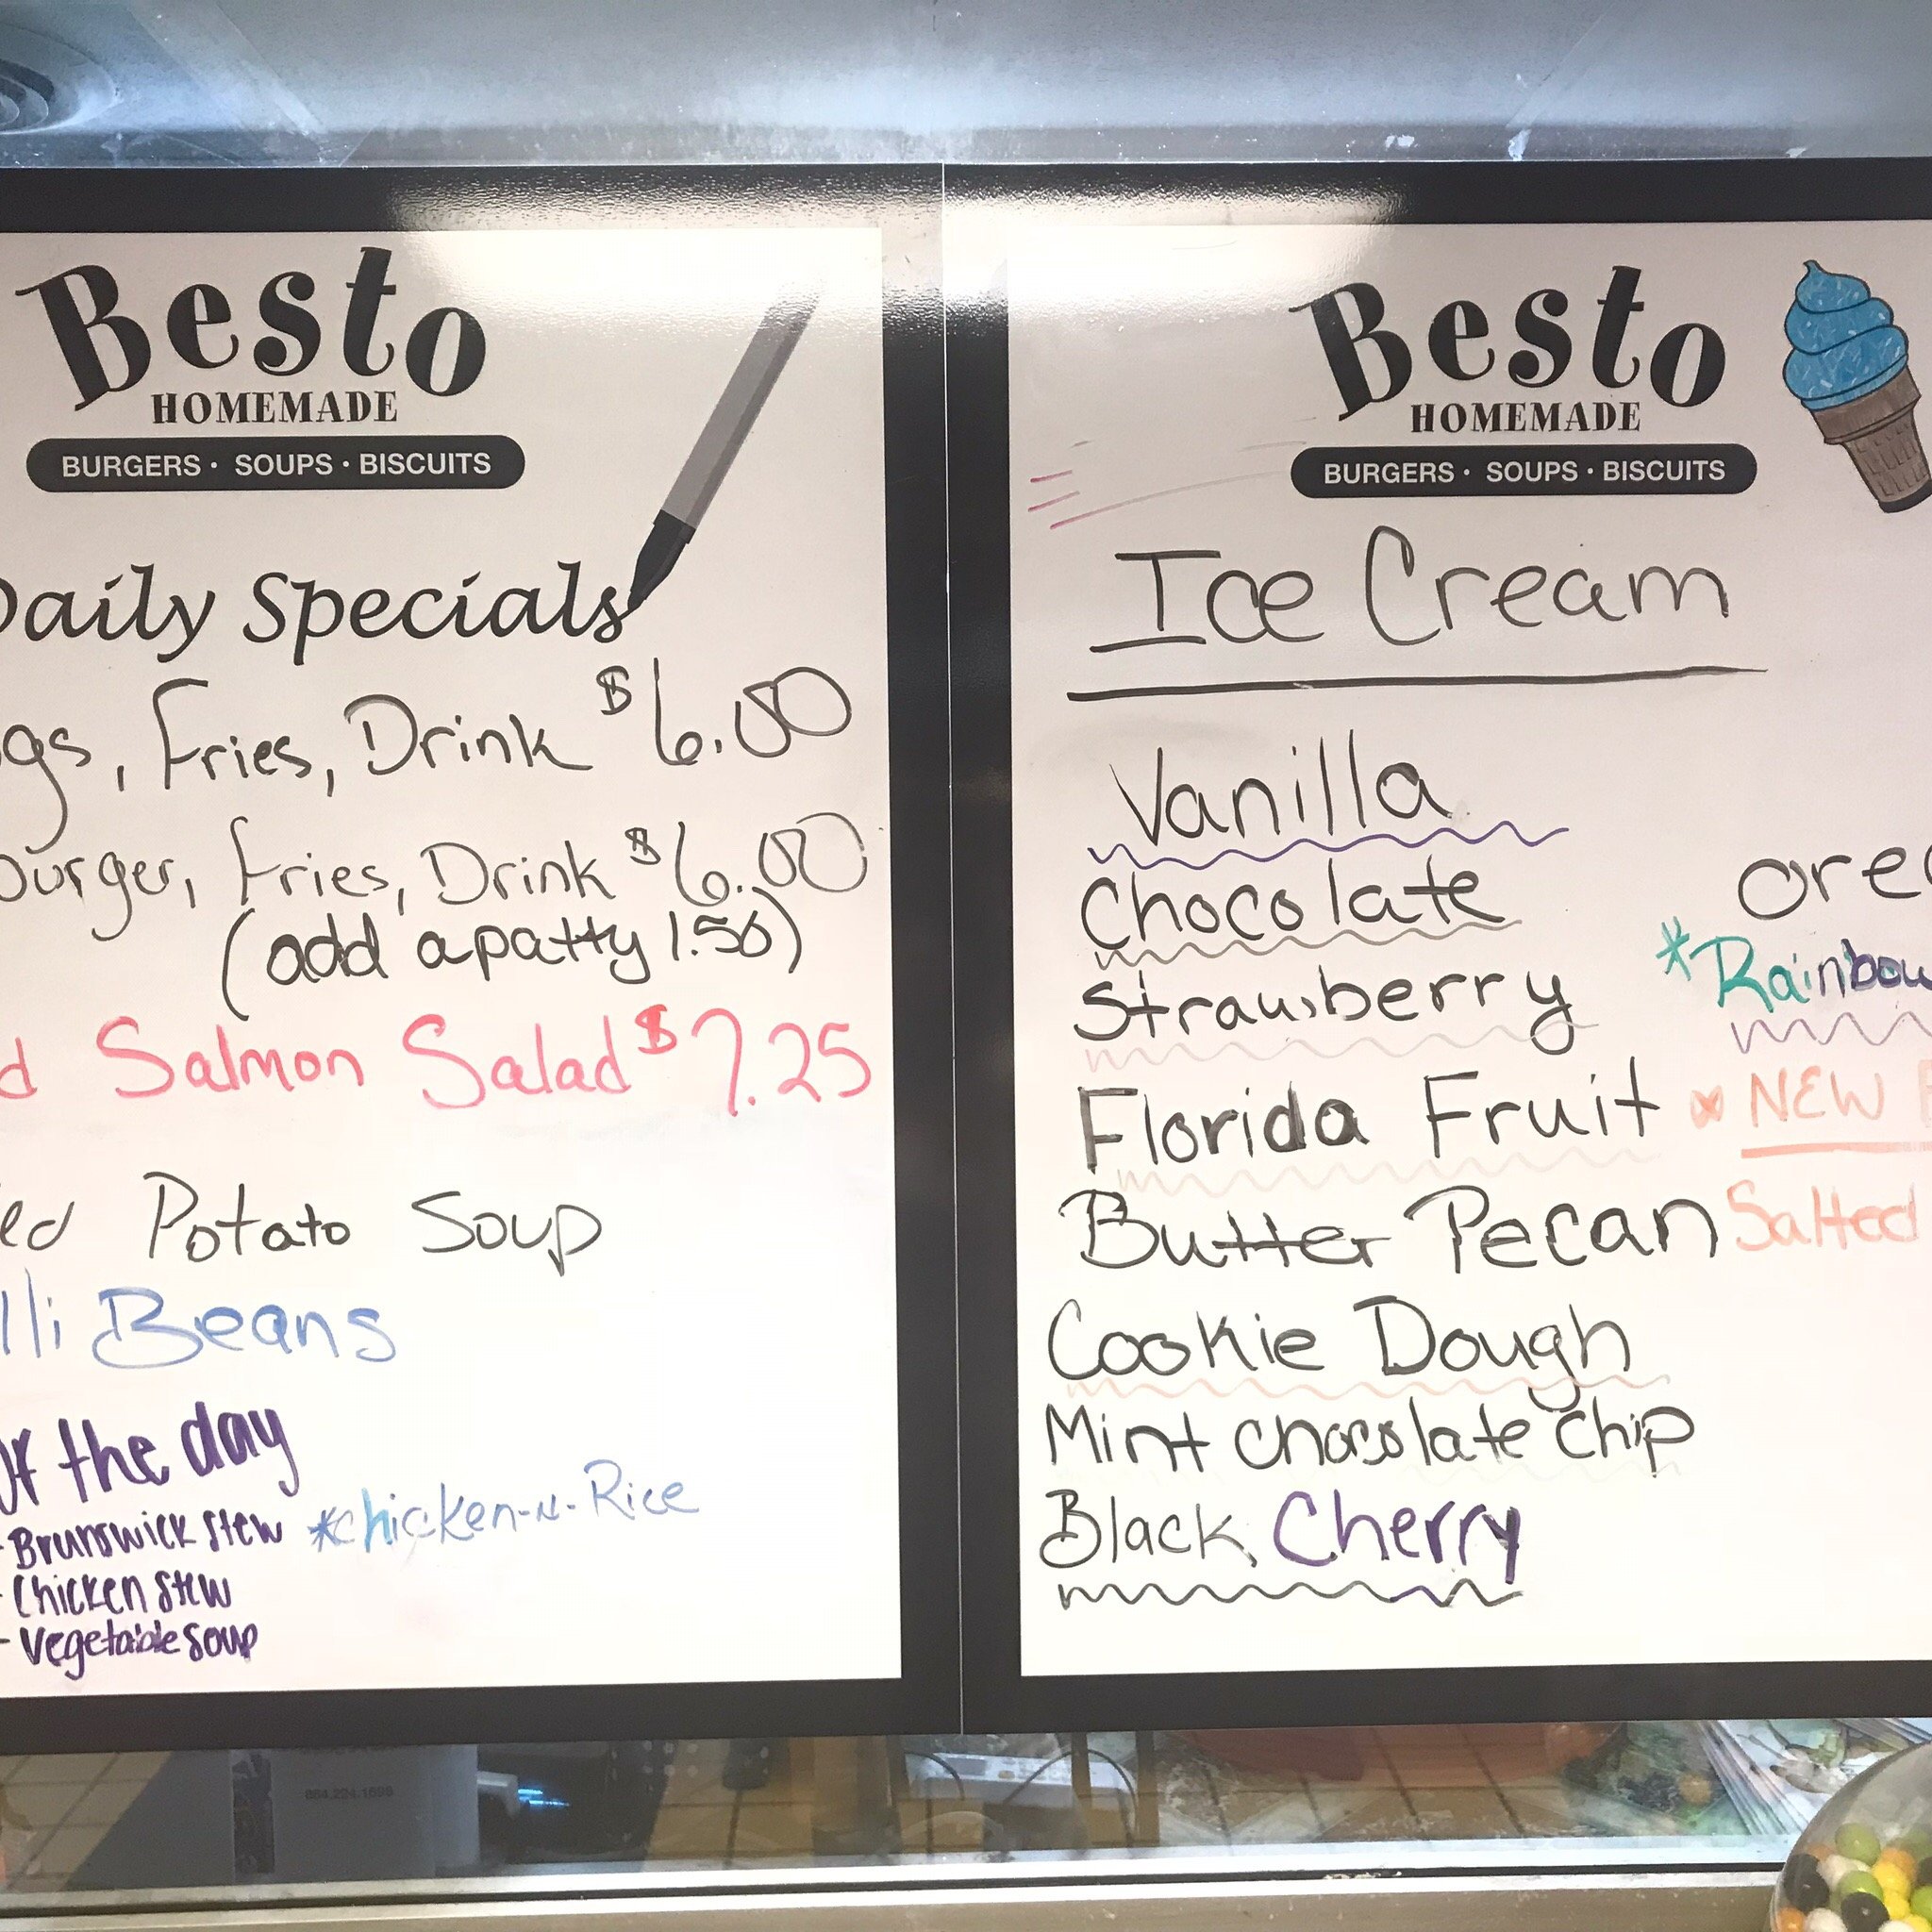 Besto
HOMEMADE
BURGERS · SOUPS · BISCUITS
Daily Specials
gs, Fries, Drink $6.00
burger, Fries, Drink $6.00
(add a patty 1.50)
d Salmon Salad $7.25
ed Potato Soup
lli Beans
of the day
- Brunswick Stew *Chicken-N-Rice
- Chicken Stew
- Vegetable Soup
Besto
HOMEMADE
BURGERS · SOUPS · BISCUITS
Ice Cream
Vanilla
Chocolate
Strawberry
Florida Fruit
Butter Pecan
Cookie Dough
Mint Chocolate Chip
Black Cherry
ore
*Rainbow
* NEW
Salted
864.224.1698